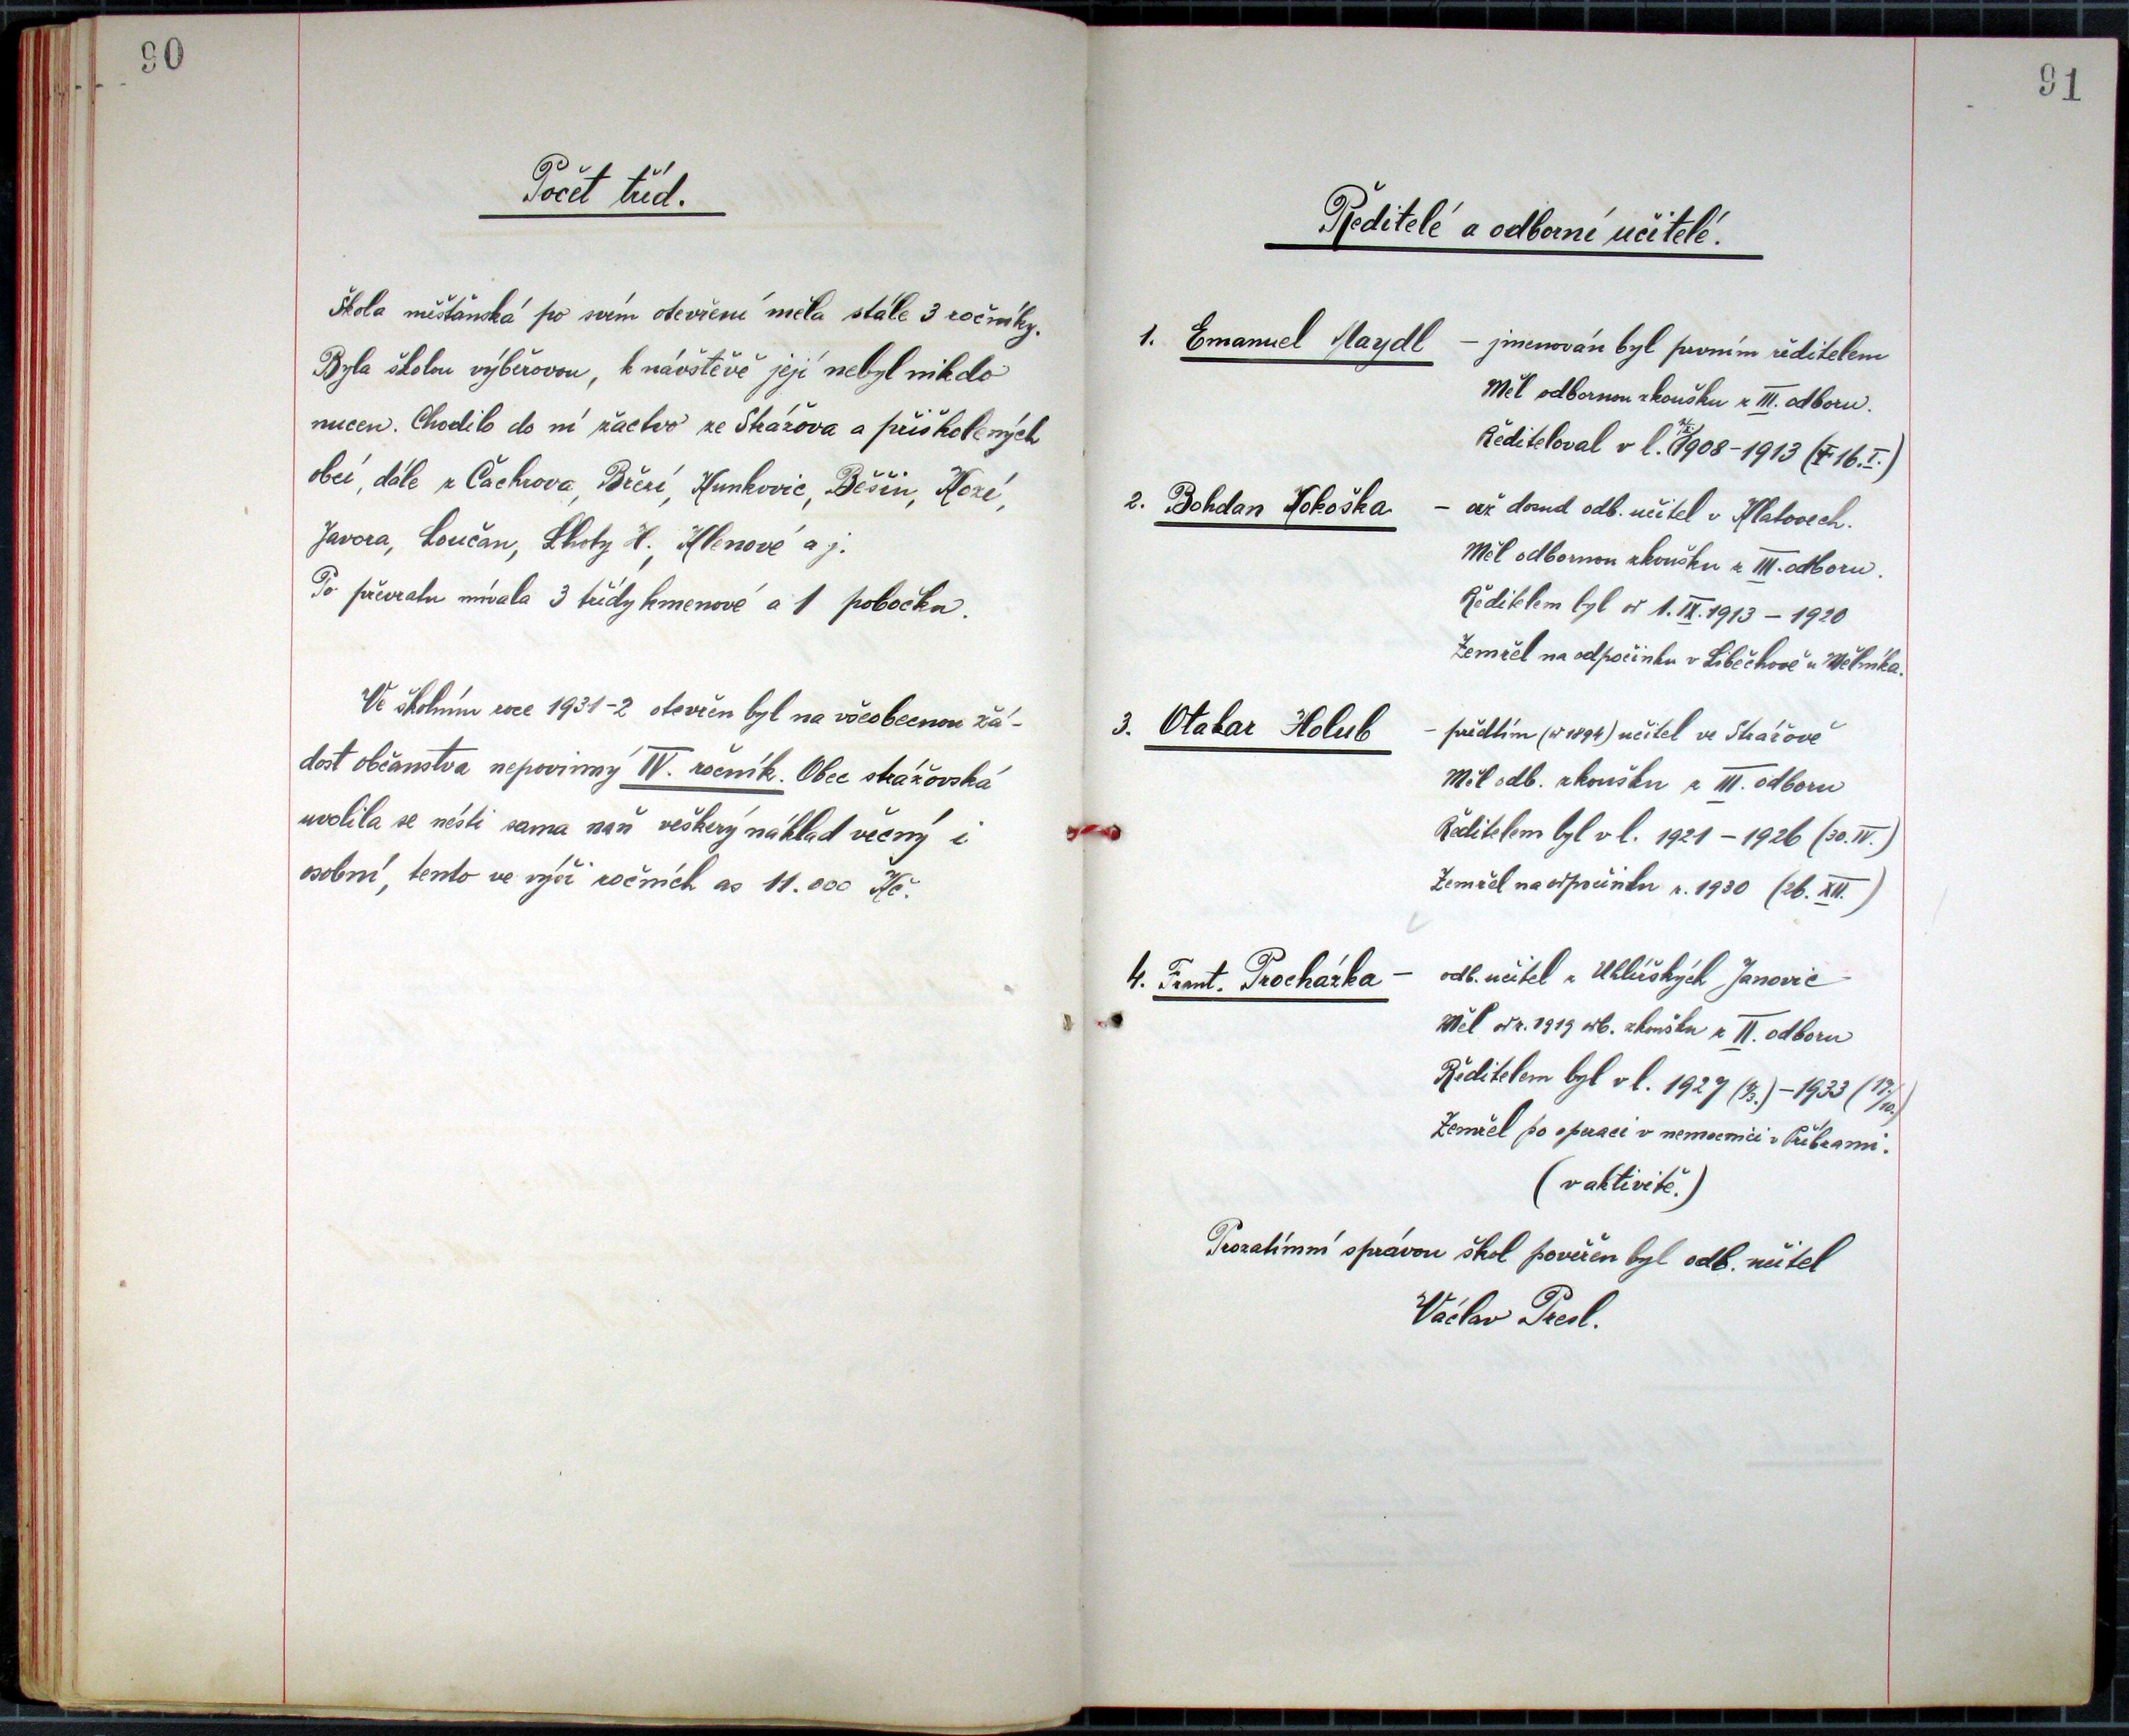 90
Počet tříd.
Škola měšťanská po svém otevření měla stále 3 ročníky.
Byla školou výběrovou, k návštěvě její nebyl nikdo
nucen. Chodilo do ní žactvo ze Strážova a přiškolených
obcí, dále z Čachrova, Břězí, Kunkovic, Běšin, Kozí,
Javora, Loučan, Lhoty H., Klenové a j.
Po převratu mívala 3 třídy kmenové a 1 pobočku.
Ve školním roce 1931-2 otevřen byl na všeobecnou žá-
dost občanstva nepovinný IV. ročník. Obec strážovská
uvolila se nésti sama naň veškerý náklad věcný i
osobní, tento ve výši ročních as 11.000 Kč.
91
Ředitelé a odborní učitelé.
1. Emanuel Maydl – jmenován byl prvním ředitelem
Měl odbornou zkoušku z III. odboru.
Řediteloval v l. 1908-1913 († 16.I.)
2. Bohdan Kokoška – až dosud odb. učitel v Klatovech.
Měl odbornou zkoušku z III. odboru.
Ředitelem byl od 1. IX. 1913 – 1920
Zemřel na odpočinku v Liběchově u Mělníka.
3. Otakar Holub – předtím (od 1894) učitel ve Strážově
Měl odb. zkoušku z III. odboru
Ředitelem byl v l. 1921 – 1926 (30. IV.)
Zemřel na odpočinku r. 1930 (26. XII.)
4. Frant. Procházka – odb. učitel z Uhlířských Janovic
Měl od r. 1919 odb. zkoušku z II. odboru
Ředitelem byl v l. 1927 – 1933 (17./10.)
Zemřel po operaci v nemocnici v Příbrami.
(v aktivitě.)
Prozatímní správou škol pověřen byl odb. učitel
Václav Presl.